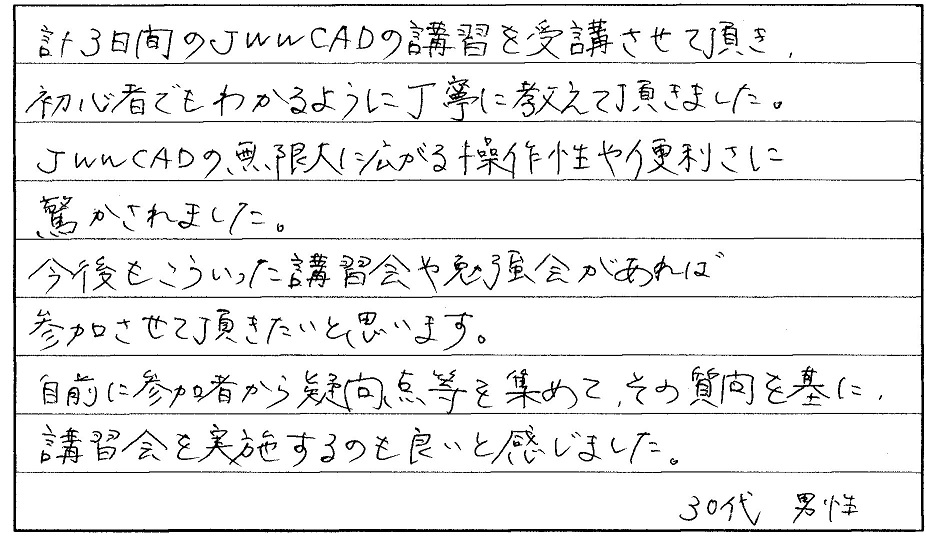 計3日間のJWWCADの講習を受講させて頂き、
初心者でもわかるように丁寧に教えて頂きました。
JWWCADの無限大に広がる操作性や便利さに
驚かされました。
今後もこういった講習会や勉強会があれば
参加させて頂きたいと思います。
自前に参加者から疑問点等を集めて、その質問を基に、
講習会を実施するのも良いと感じました。
30代 男性